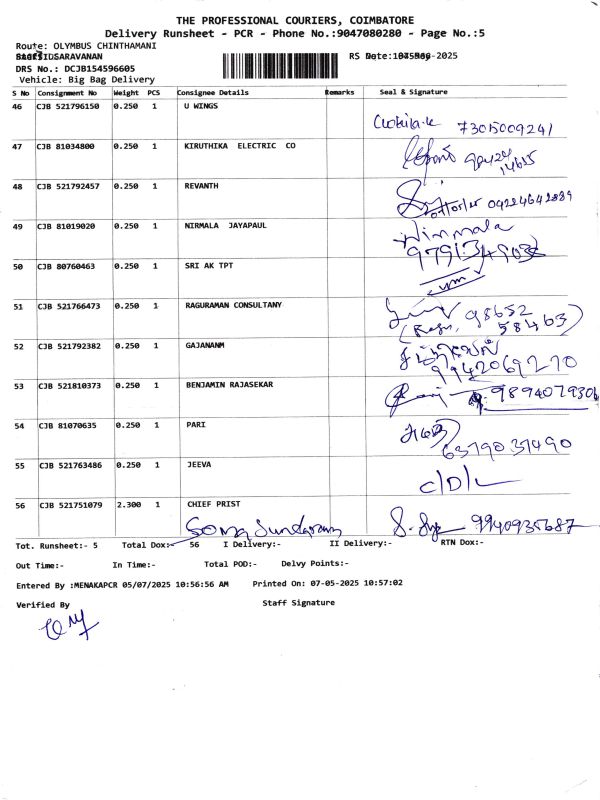 THE PROFESSIONAL COURIERS, COIMBATORE
Delivery Runsheet - PCR - Phone No.:9047080280 - Page No.:5
Route: OLYMBUS CHINTHAMANI
SARAVANAN
DRS No.: DCJB154596605
Vehicle: Big Bag Delivery
S No Consignment No Weight PCS Consignee Details Remarks Seal & Signature
46 CJB 521796150 0.250 1 U WINGS
7305009241
47 CJB 81034800 0.250 1 KIRUTHIKA ELECTRIC CO
48 CJB 521792457 0.250 1 REVANTH
04224642889
49 CJB 81019020 0.250 1 NIRMALA JAYAPAUL Nirmala
50 CJB 80760463 0.250 1 SRI AK TPT
51 CJB 521766473 0.250 1 RAGURAMAN CONSULTANY 98652
58463
52 CJB 521792382 0.250 1 GAJANANM
9942069270
53 CJB 521810373 0.250 1 BENJAMIN RAJASEKAR
54 CJB 81070635 0.250 1 PARI
6379031490
55 CJB 521763486 0.250 1 JEEVA
C/D/L
56 CJB 521751079 2.300 1 CHIEF PRIST
Soma Sundaram 9940935687
Tot. Runsheet:- 5 Total Dox:- 56 I Delivery:- II Delivery:- RTN Dox:-
Out Time:- In Time:- Total POD:- Delvy Points:-
Entered By :MENAKAPCR 05/07/2025 10:56:56 AM Printed On: 07-05-2025 10:57:02
Verified By Staff Signature